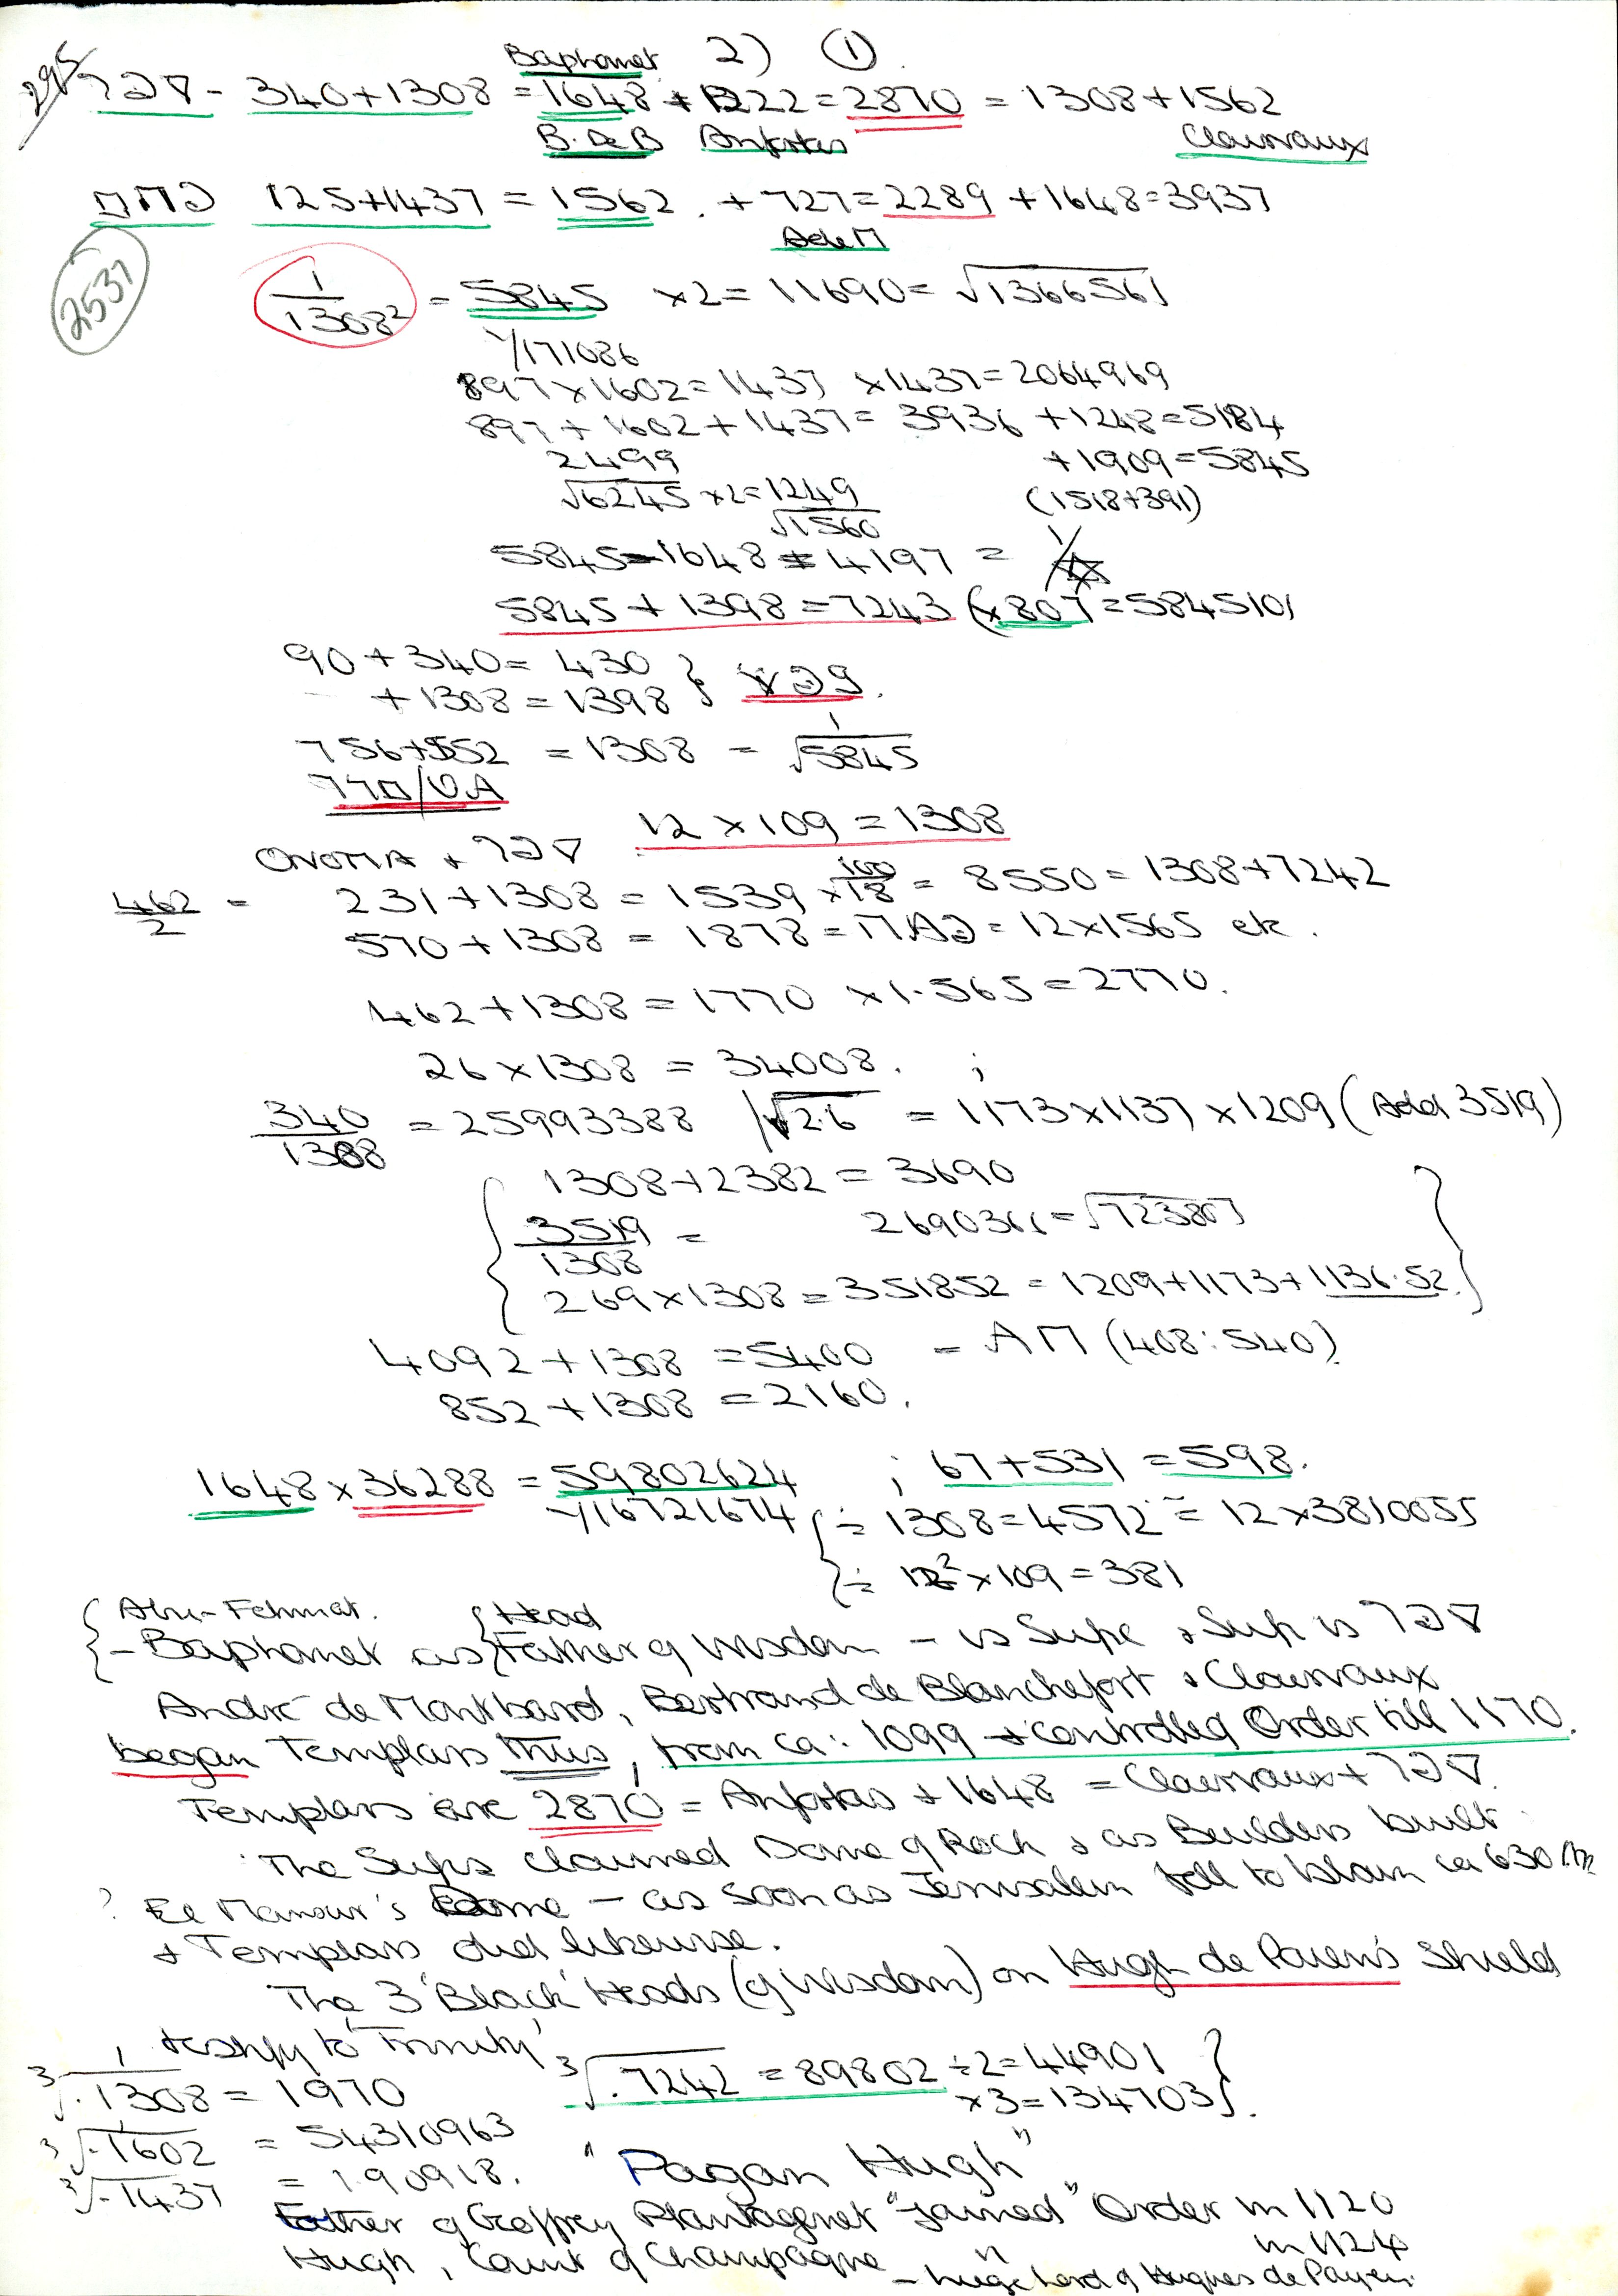 Baphomet 2) ①
295 ㄱ𝟤∇ - 340+1308 = 1648 + 1222 = 2870 = 1308+1562
B. De B Anfortas Clairvaux
125+1437 = 1562. + 727 = 2289 + 1648 = 3937
A de M
2537
1/1308² = 5845 ×2 = 11690 = √1366561
1/171086
897×1602 = 1437 ×1437 = 2064969
897 + 1602 + 1437 = 3936 + 1248 = 5184
2499 +1909 = 5845
√6245 ×2 = 1249 (1518+391)
√1560
5845 - 1648 = 4197 =
5845 + 1398 = 7243 (×807 = 5845101
90 + 340 = 430
+ 1308 = 1398
756+552 = 1308 = 1/√5845
12 × 109 = 1308
462/2 = 231+1308 = 1539 × 100/18 = 8550 = 1308+7242
570 + 1308 = 1878 = = 12×1565 etc.
462 + 1308 = 1770 ×1.565 = 2770.
26 × 1308 = 34008. ;
340/1308 = 25993388 /√2.6 = 1173×1137×1209 (Add 3519)
1308+2382 = 3690
3519/1308 = 2690366 = √723807
269×1308 = 351852 = 1209+1173+1136.52.
4092 + 1308 = 5400 = AΠ (408:540).
852 + 1308 = 2160.
1648 × 36288 = 59802624 ; 67+531 = 598.
1/16721674 ÷ 1308 = 4572 = 12×3810055
÷ 12² × 109 = 381
Abu-Fehmat. Head
- Baphomet as Father of Wisdom - is & Sup is
André de Montbard, Bertrand de Blanchefort & Clairvaux
began Templars thus, from ca: 1099 & controlled Order till 1170.
Templars are 2870 = Anfortas + 1648 = Clairvaux +
The Sufis claimed Dome of Rock & as Builders built
? El Mansur's Dome - as soon as Jerusalem fell to Islam ca 630
& Templars did likewise.
The 3 'Black' Heads (of Wisdom) on Hugh de Paien's Shield
testify to 'Trinity'
1/³√.1308 = 1970 ³√.7242 = 89802 ÷2 = 44901
×3 = 134703
³√.1602 = 54310963
³√.1437 = 1.90918. "Pagan Hugh"
Father of Geoffrey Plantagenet "joined" Order in 1120
Hugh, Count of Champagne " in 1124
- liege lord of Hugues de Payen.